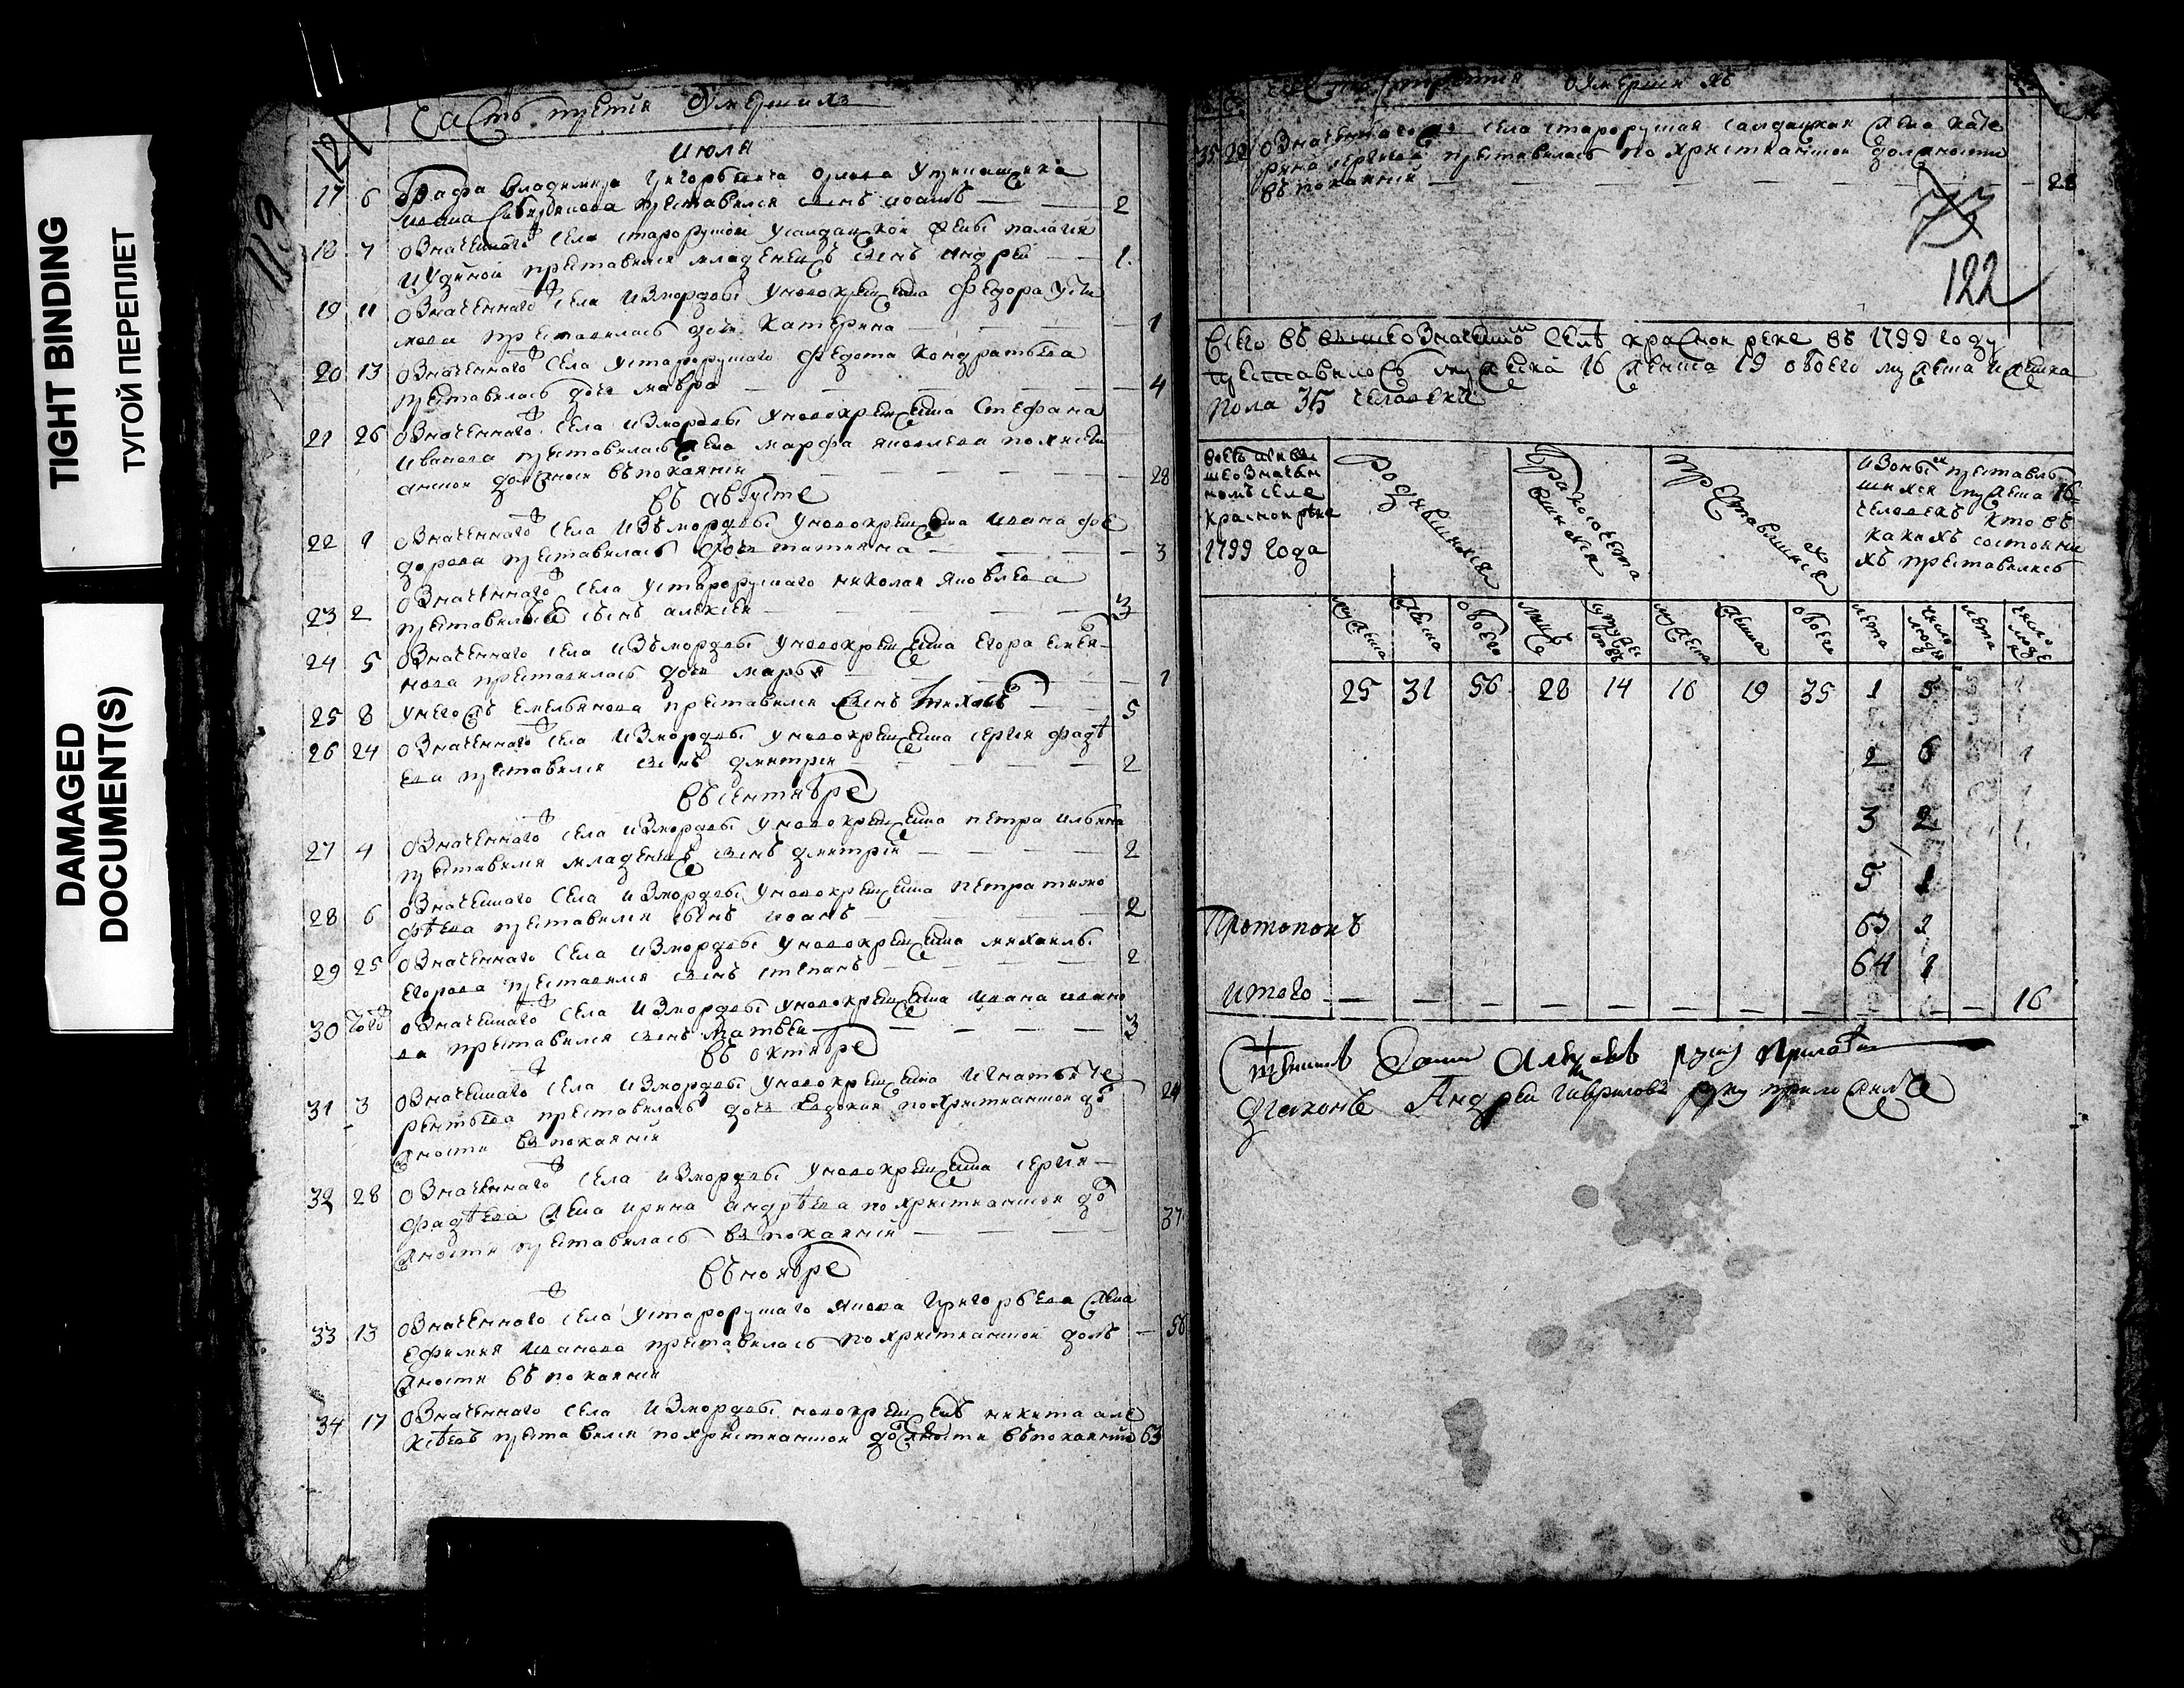 TIGHT BINDING
ТУГОЙ ПЕРЕПЛЕТ
DAMAGED
DOCUMENT(S)
119
121
Часть третія Умершихъ
Июля
17 6 Графа Владимира Григорьевича Орлова
преставился сынъ Иоаннъ — 2
18 7 Означеннаго села старорускои у салдацкои жены Палагіи
преставился младенецъ сынъ Андреи — 1
19 11 Означеннаго села изъ мордвы у новокрещена Федора
преставилась дочь Катерина — 1
20 13 Означеннаго села у старорускаго Федота Кондратьева
преставилась дочь Мавра — 4
21 26 Означеннаго села изъ мордвы у новокрещена Стефана
Иванова преставилась жена Марфа Яковлева по христи
анскои должности въ покаяніи — 28
въ августе
22 1 Означеннаго села изъ мордвы у новокрещена Ивана Фе
дорова преставилась дочь Татияна — 3
23 2 Означеннаго села у старорускаго Николая Яковлева
преставился сынъ Алексеи — 3
24 5 Означеннаго села изъ мордвы у новокрещена Егора Емел
нова преставилась дочь Марья — 1
25 8 У негожъ Емельянова преставился сынъ — 5
26 24 Означеннаго села изъ мордвы у новокрещена Сергия Фадѣ
ева преставился сынъ Дмитреи — 2
въ сентябре
27 4 Означеннаго села изъ мордвы у новокрещена Петра Ильина
преставился младенецъ сынъ Дмитреи — 2
28 6 Означеннаго села изъ мордвы у новокрещена Петра Тимо
фѣева преставился сынъ Иоаннъ — 2
29 25 Означеннаго села изъ мордвы у новокрещена Михаилы
Егорова преставился сынъ Степанъ — 2
30 Означеннаго села изъ мордвы у новокрещена Ивана Ивано
ва преставился сынъ Матвеи — 3
въ октябре
31 3 Означеннаго села изъ мордвы у новокрещена Игнатья Те
рентьева преставилась дочь Евдокия по христианскои дол
жности въ покаяніи 24
32 28 Означеннаго села изъ мордвы у новокрещена Сергия
Фадѣева жена Ирина Андрѣева по христианскои дол
жности преставилась въ покаяніи — 37
въ ноябре
33 13 Означеннаго села у старорускаго Якова Григорьева жена
Ефимия Иванова преставилась по христианскои долъ
жности въ покаяніи — 56
34 17 Означеннаго села изъ мордвы новокрещенъ Никита Але
ксѣевъ преставился по христианскои должности въ покаяніи 63
Часть третія Умершихъ
35 22 Означеннаго села староруская салдацкая жена Кате
рина преставилась по христианскои должности
въ покаяніи — 28
122
Всего въ вышеозначенномъ селѣ красной реке въ 1799 году
преставилось мужеска 16 женска 19 обоего мужеска и женска
пола 35 человекъ
красной реке
1799 года
Родившихся
Бракосочета
вшихся
Преставившихся
изоныхъ преставль
шихся мужеска 16
человекъ кто въ
какихъ состояни
хъ преставились
мужеска женска обоего мужеска женска обоего лета число людей лета число людей
25 31 56 28 14 16 19 35 1 5
2 6
3 2
5 1
63 1
64 1
Протопопъ
Итого — — — — — — — — 16
Священникъ Алексеевъ руку приложилъ
Диаконъ Андреи Гавриловъ руку приложилъ